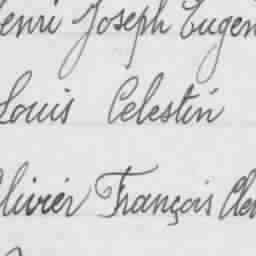 Henri Joseph Eugen
Louis Celestin
Olivier François Clem